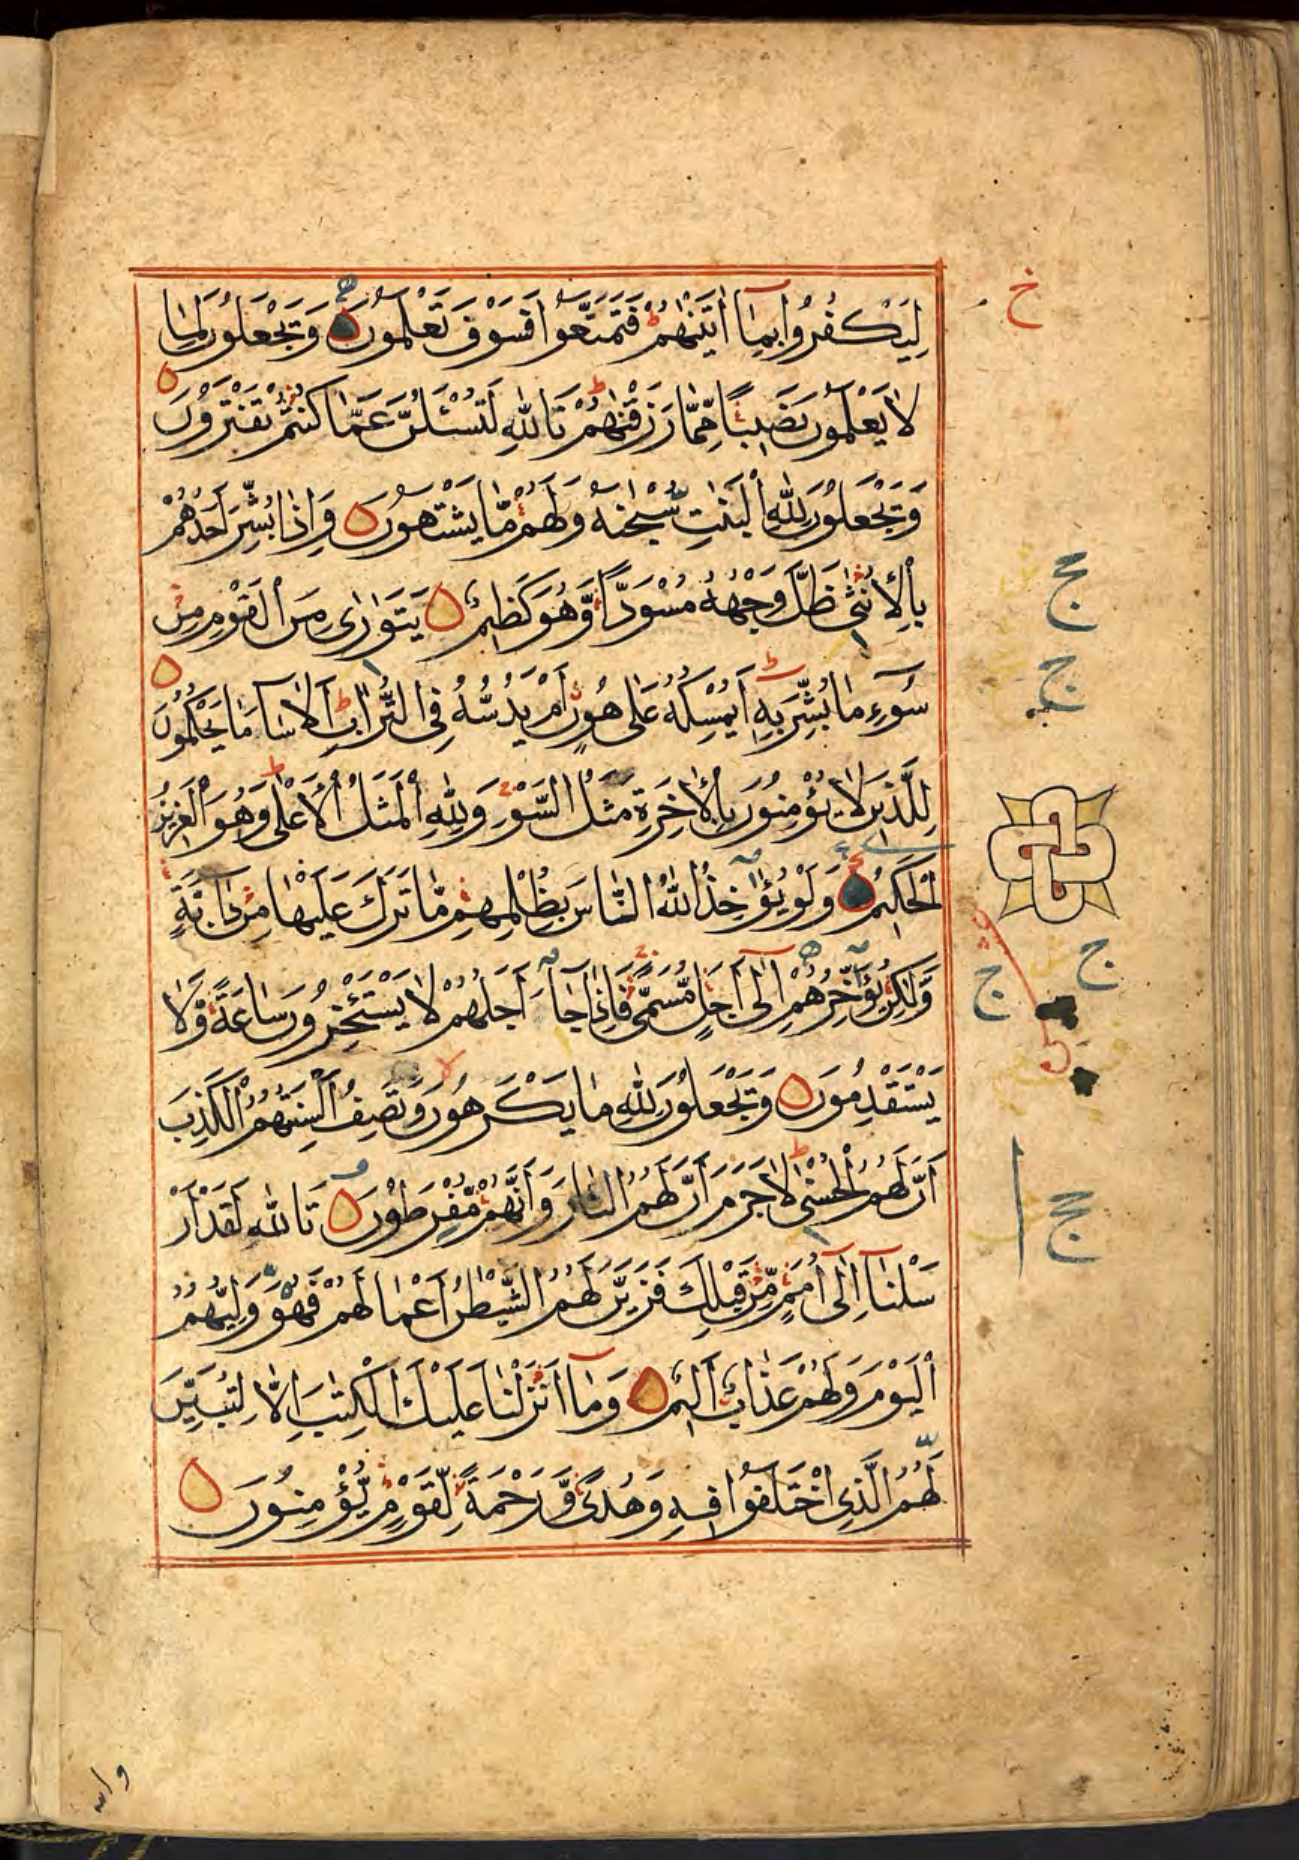 لِيَكْفُرُوا بِمَا اٰتَيْنٰهُمْ ط فَتَمَتَّعُوا فَسَوْفَ تَعْلَمُونَ وَيَجْعَلُونَ لِمَا
لَا يَعْلَمُونَ نَصِيبًا مِّمَّا رَزَقْنٰهُمْ ط تَاللّٰهِ لَتُسْـَٔلُنَّ عَمَّا كُنْتُمْ تَفْتَرُونَ
وَيَجْعَلُونَ لِلّٰهِ الْبَنٰتِ سُبْحٰنَهُ وَلَهُمْ مَّا يَشْتَهُونَ وَاِذَا بُشِّرَ اَحَدُهُمْ
بِالْاُنْثٰى ظَلَّ وَجْهُهُ مُسْوَدًّا وَّهُوَ كَظِيمٌ يَتَوَارٰى مِنَ الْقَوْمِ مِنْ
سُوٓءِ مَا بُشِّرَ بِهِ ط اَيُمْسِكُهُ عَلٰى هُونٍ اَمْ يَدُسُّهُ فِى التُّرَابِ ط اَلَا سَآءَ مَا يَحْكُمُونَ
لِلَّذِينَ لَا يُؤْمِنُونَ بِالْاٰخِرَةِ مَثَلُ السَّوْءِ وَلِلّٰهِ الْمَثَلُ الْاَعْلٰى ط وَهُوَ الْعَزِيزُ
الْحَكِيمُ وَلَوْ يُؤَاخِذُ اللّٰهُ النَّاسَ بِظُلْمِهِمْ مَّا تَرَكَ عَلَيْهَا مِنْ دَآبَّةٍ
وَّلٰكِنْ يُؤَخِّرُهُمْ اِلٰٓى اَجَلٍ مُّسَمًّى فَاِذَا جَآءَ اَجَلُهُمْ لَا يَسْتَئْخِرُونَ سَاعَةً وَّلَا
يَسْتَقْدِمُونَ وَيَجْعَلُونَ لِلّٰهِ مَا يَكْرَهُونَ وَتَصِفُ اَلْسِنَتُهُمُ الْكَذِبَ
اَنَّ لَهُمُ الْحُسْنٰى ط لَا جَرَمَ اَنَّ لَهُمُ النَّارَ وَاَنَّهُمْ مُّفْرَطُونَ تَاللّٰهِ لَقَدْ اَرْ
سَلْنَآ اِلٰٓى اُمَمٍ مِّنْ قَبْلِكَ فَزَيَّنَ لَهُمُ الشَّيْطٰنُ اَعْمَالَهُمْ فَهُوَ وَلِيُّهُمُ
الْيَوْمَ وَلَهُمْ عَذَابٌ اَلِيمٌ وَمَآ اَنْزَلْنَا عَلَيْكَ الْكِتٰبَ اِلَّا لِتُبَيِّنَ
لَهُمُ الَّذِى اخْتَلَفُوا فِيهِ وَهُدًى وَّرَحْمَةً لِّقَوْمٍ يُّؤْمِنُونَ
خ
ج
ج
ج
ج
ج
والله